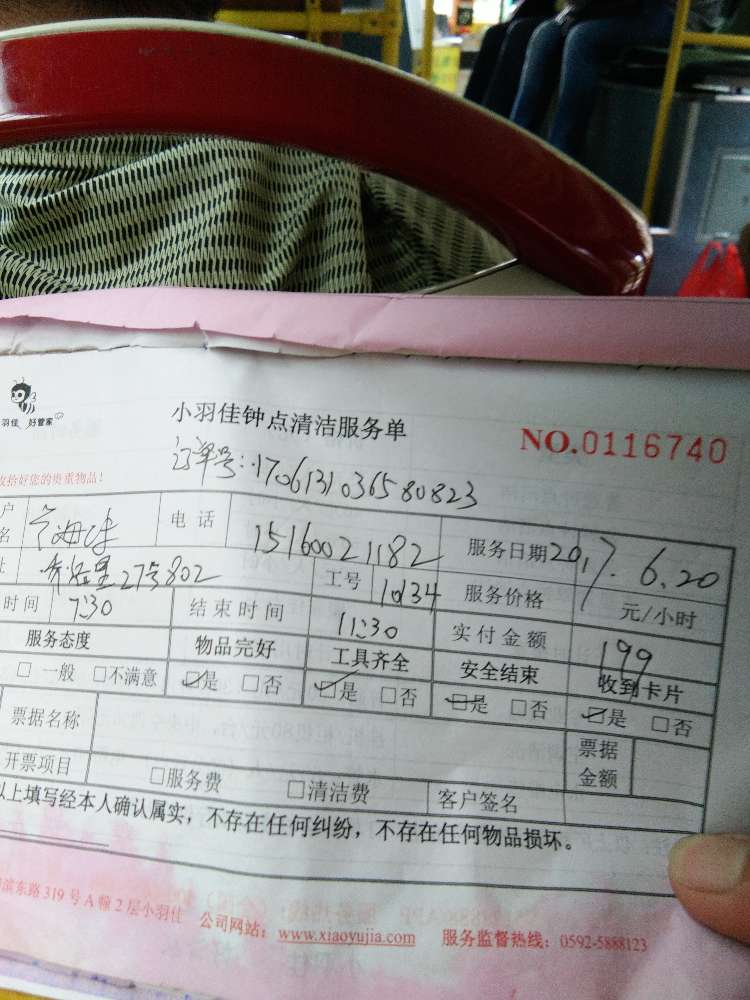 羽佳 好管家
小羽佳钟点清洁服务单
NO.0116740
订单号:170613103658 0823
收拾好您的贵重物品!
户名 电话 15160021182 服务日期 2017.6.20
址 27号802 工号 1034 服务价格 元/小时
时间 7:30 结束时间 11:30 实付金额 199
服务态度 物品完好 工具齐全 安全结束 收到卡片
□ 一般 □不满意 ☑是 □否 ☑是 □否 ☑是 □否 ☑是 □否
票据名称 票据金额
开票项目 □服务费 □清洁费 客户签名
以上填写经本人确认属实，不存在任何纠纷，不存在任何物品损坏。
滨东路319号A幢2层小羽佳 公司网站：www.xiaoyujia.com 服务监督热线：0592-5888123